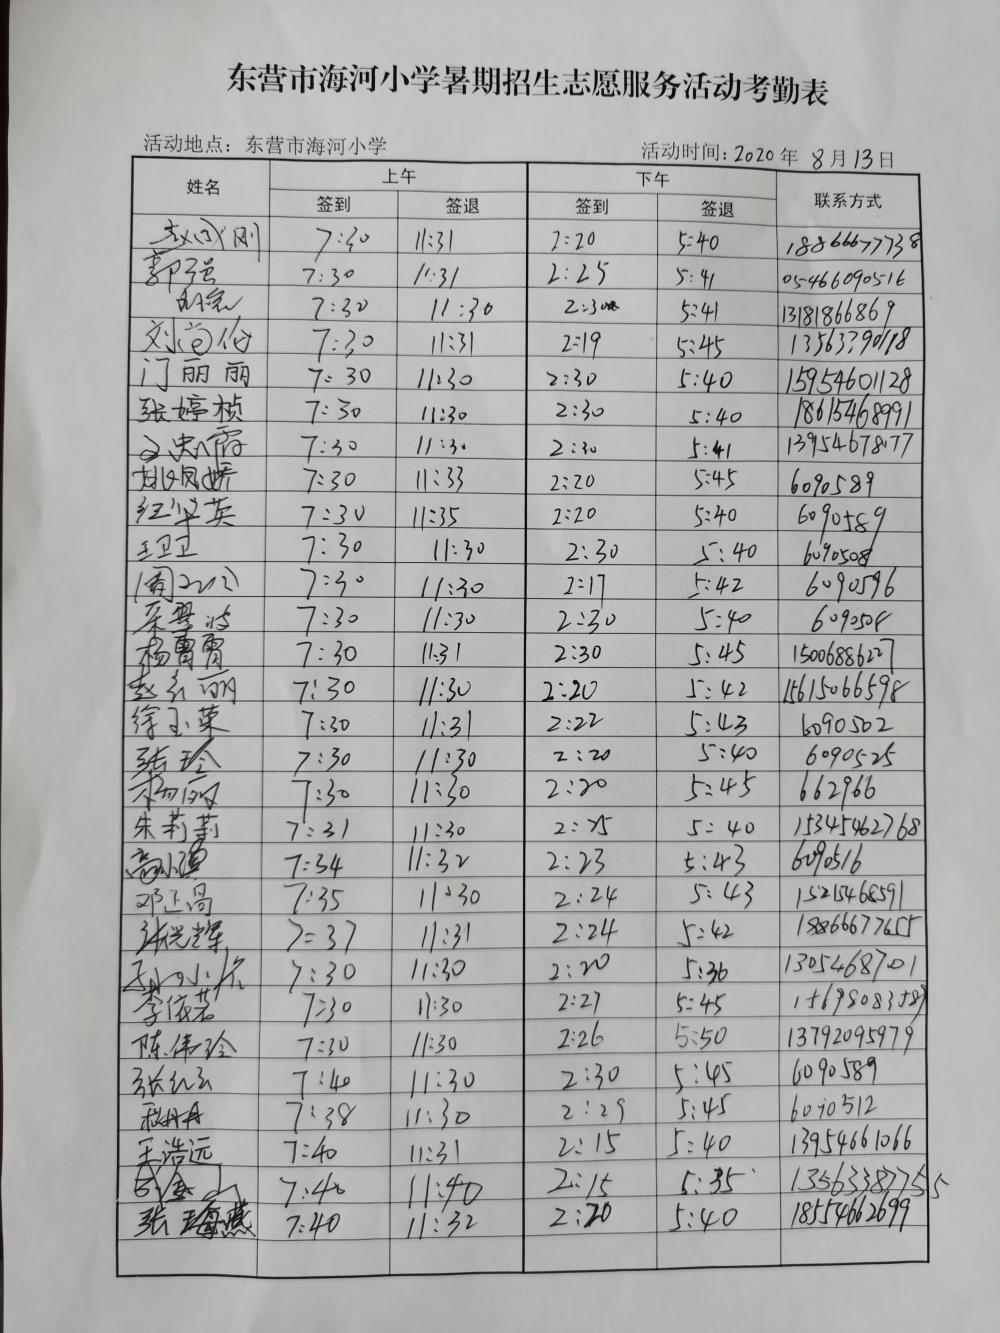 东营市海河小学暑期招生志愿服务活动考勤表
活动地点：东营市海河小学 活动时间：2020年 8月13日
姓名 上午 下午 联系方式
签到 签退 签到 签退
赵国刚 7:30 11:31 2:20 5:40 18866677738
郭强 7:30 11:31 2:25 5:41 05466090516
7:30 11:30 2:30 5:41 13181866869
刘尚伦 7:30 11:31 2:19 5:45
门丽丽 7:30 11:30 2:30 5:40 15954601128
张婷桢 7:30 11:30 2:30 5:40 18615468991
7:30 11:30 2:30 5:41 13954678177
7:30 11:33 2:20 5:45 6090589
7:30 11:35 2:20 5:40 6090589
王卫卫 7:30 11:30 2:30 5:40 6090508
7:30 11:30 2:17 5:42 6090596
7:30 11:30 2:30 5:40 6090508
杨胃胃 7:30 11:31 2:30 5:45 15006886227
赵永丽 7:30 11:30 2:20 5:42 15615066598
徐玉荣 7:30 11:31 2:22 5:43 6090502
张玲 7:30 11:30 2:20 5:40 6090525
杨丽 7:30 11:30 2:20 5:45 662966
朱莉莉 7:31 11:30 2:25 5:40 15345462768
7:34 11:32 2:23 5:43 6090516
邓正高 7:35 11:30 2:24 5:43 15215468591
7:37 11:31 2:24 5:42 18866677655
7:30 11:30 2:20 5:36 13054687701
李依若 7:30 11:30 2:27 5:45 15698083589
陈伟玲 7:30 11:30 2:26 5:50 13792095979
张红云 7:40 11:30 2:30 5:45 6090589
7:38 11:30 2:29 5:45 6090512
王浩远 7:40 11:31 2:15 5:40 13954661066
7:40 11:40 2:15 5:35 13563387755
张海燕 7:40 11:32 2:20 5:40 18554662699